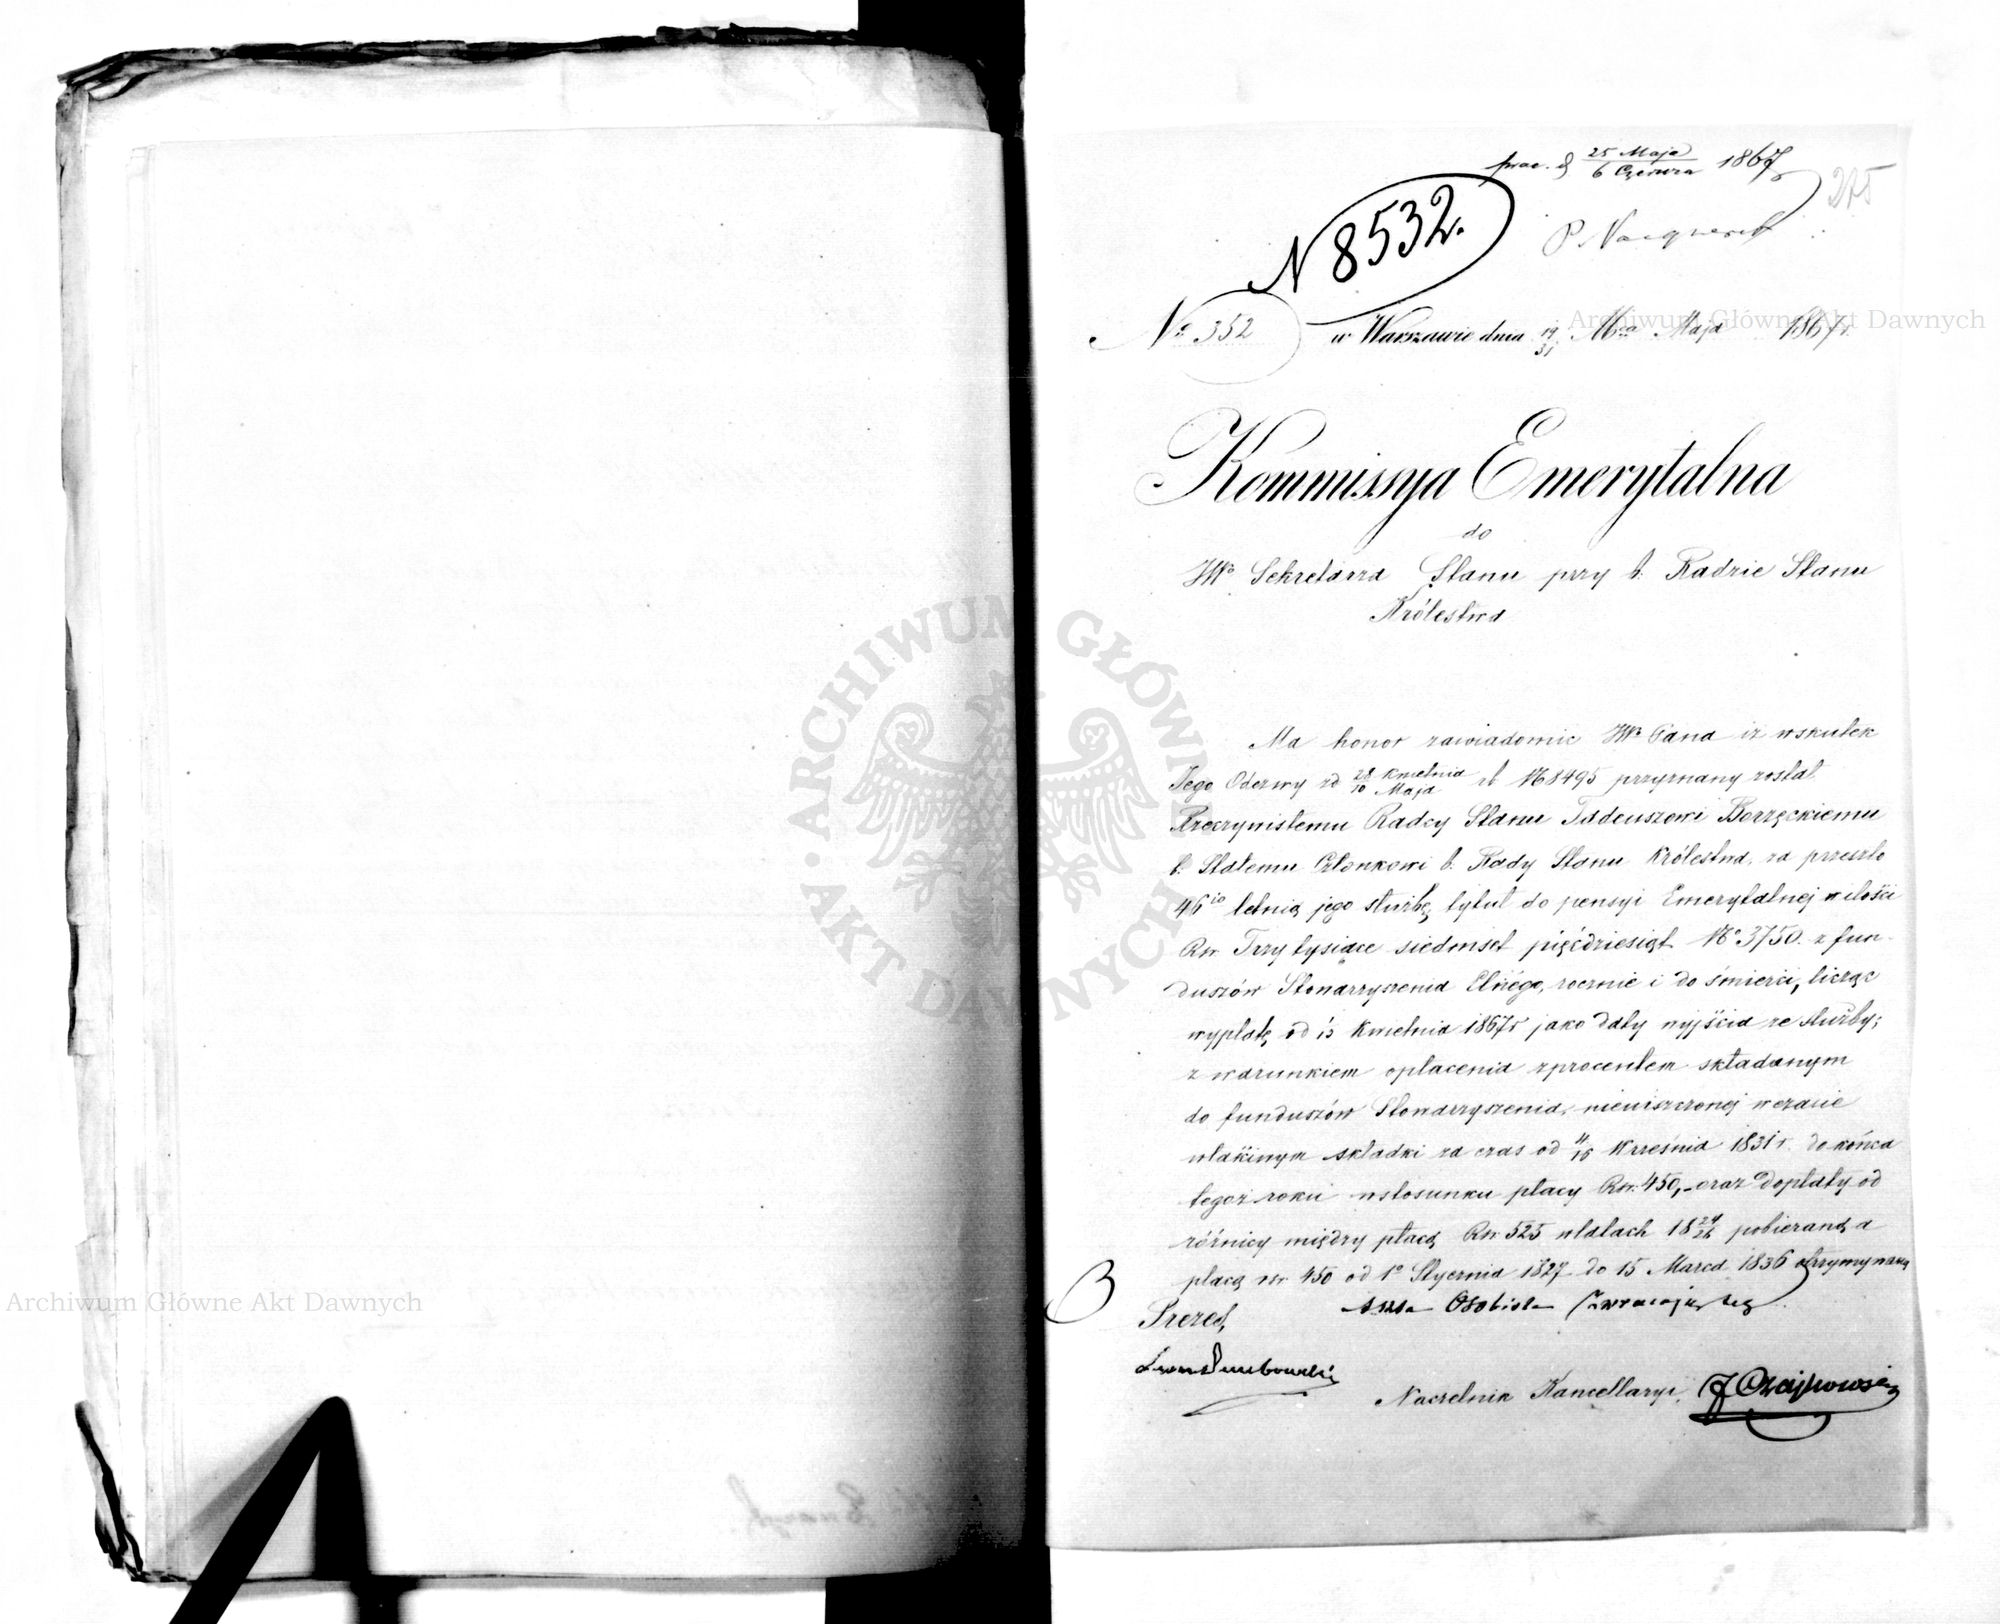 prae. d. 25 Maja / 6 Czerwca 1867
275
N 8532.
P.
No 352 w Warszawie dnia 19/31 Mca Maja 1867 r.
Kommissya Emerytalna
do
JWo Sekretarza Stanu przy b. Radzie Stanu
Królestwa
Ma honor zawiadomić JWo Pana iż wskutek
Jego Odezwy zd 28 Kwietnia / 10 Maja rb N 8495 przyznany został
Rzeczywistemu Radcy Stanu Tadeuszowi Borzęckiemu
b. Stałemu Członkowi b. Rady Stanu Królestwa, za przeszło
46io letnią jego służbę, tytuł do pensyi Emerytalnej w ilości
Rsr. Trzy tysiące siedmset pięćdziesiąt No 3750. z fun-
duszów Stowarzyszenia Elnego, rocznie i do śmierci, licząc
wypłatę od 1/13 Kwietnia 1867 r jako daty wyjścia ze służby;
z warunkiem opłacenia z procentem składanym
do funduszów Stowarzyszenia, nieuiszczonej w czasie
właściwym składki za czas od 4/16 Września 1831 r. do końca
tegoż roku w stosunku płacy Rsr. 450, - oraz dopłaty od
różnicy między płacą Rsr 525 w latach 18 24/26 pobieraną a
płacą rsr. 450 od 1o Stycznia 1827 do 15 Marca 1836 otrzymywaną
Assa Osobista zwracają się
Prezes,
Naczelnik Kancellaryi, J Czajkowski
ARCHIWUM GŁÓWNE AKT DAWNYCH
Archiwum Główne Akt Dawnych
Archiwum Główne Akt Dawnych